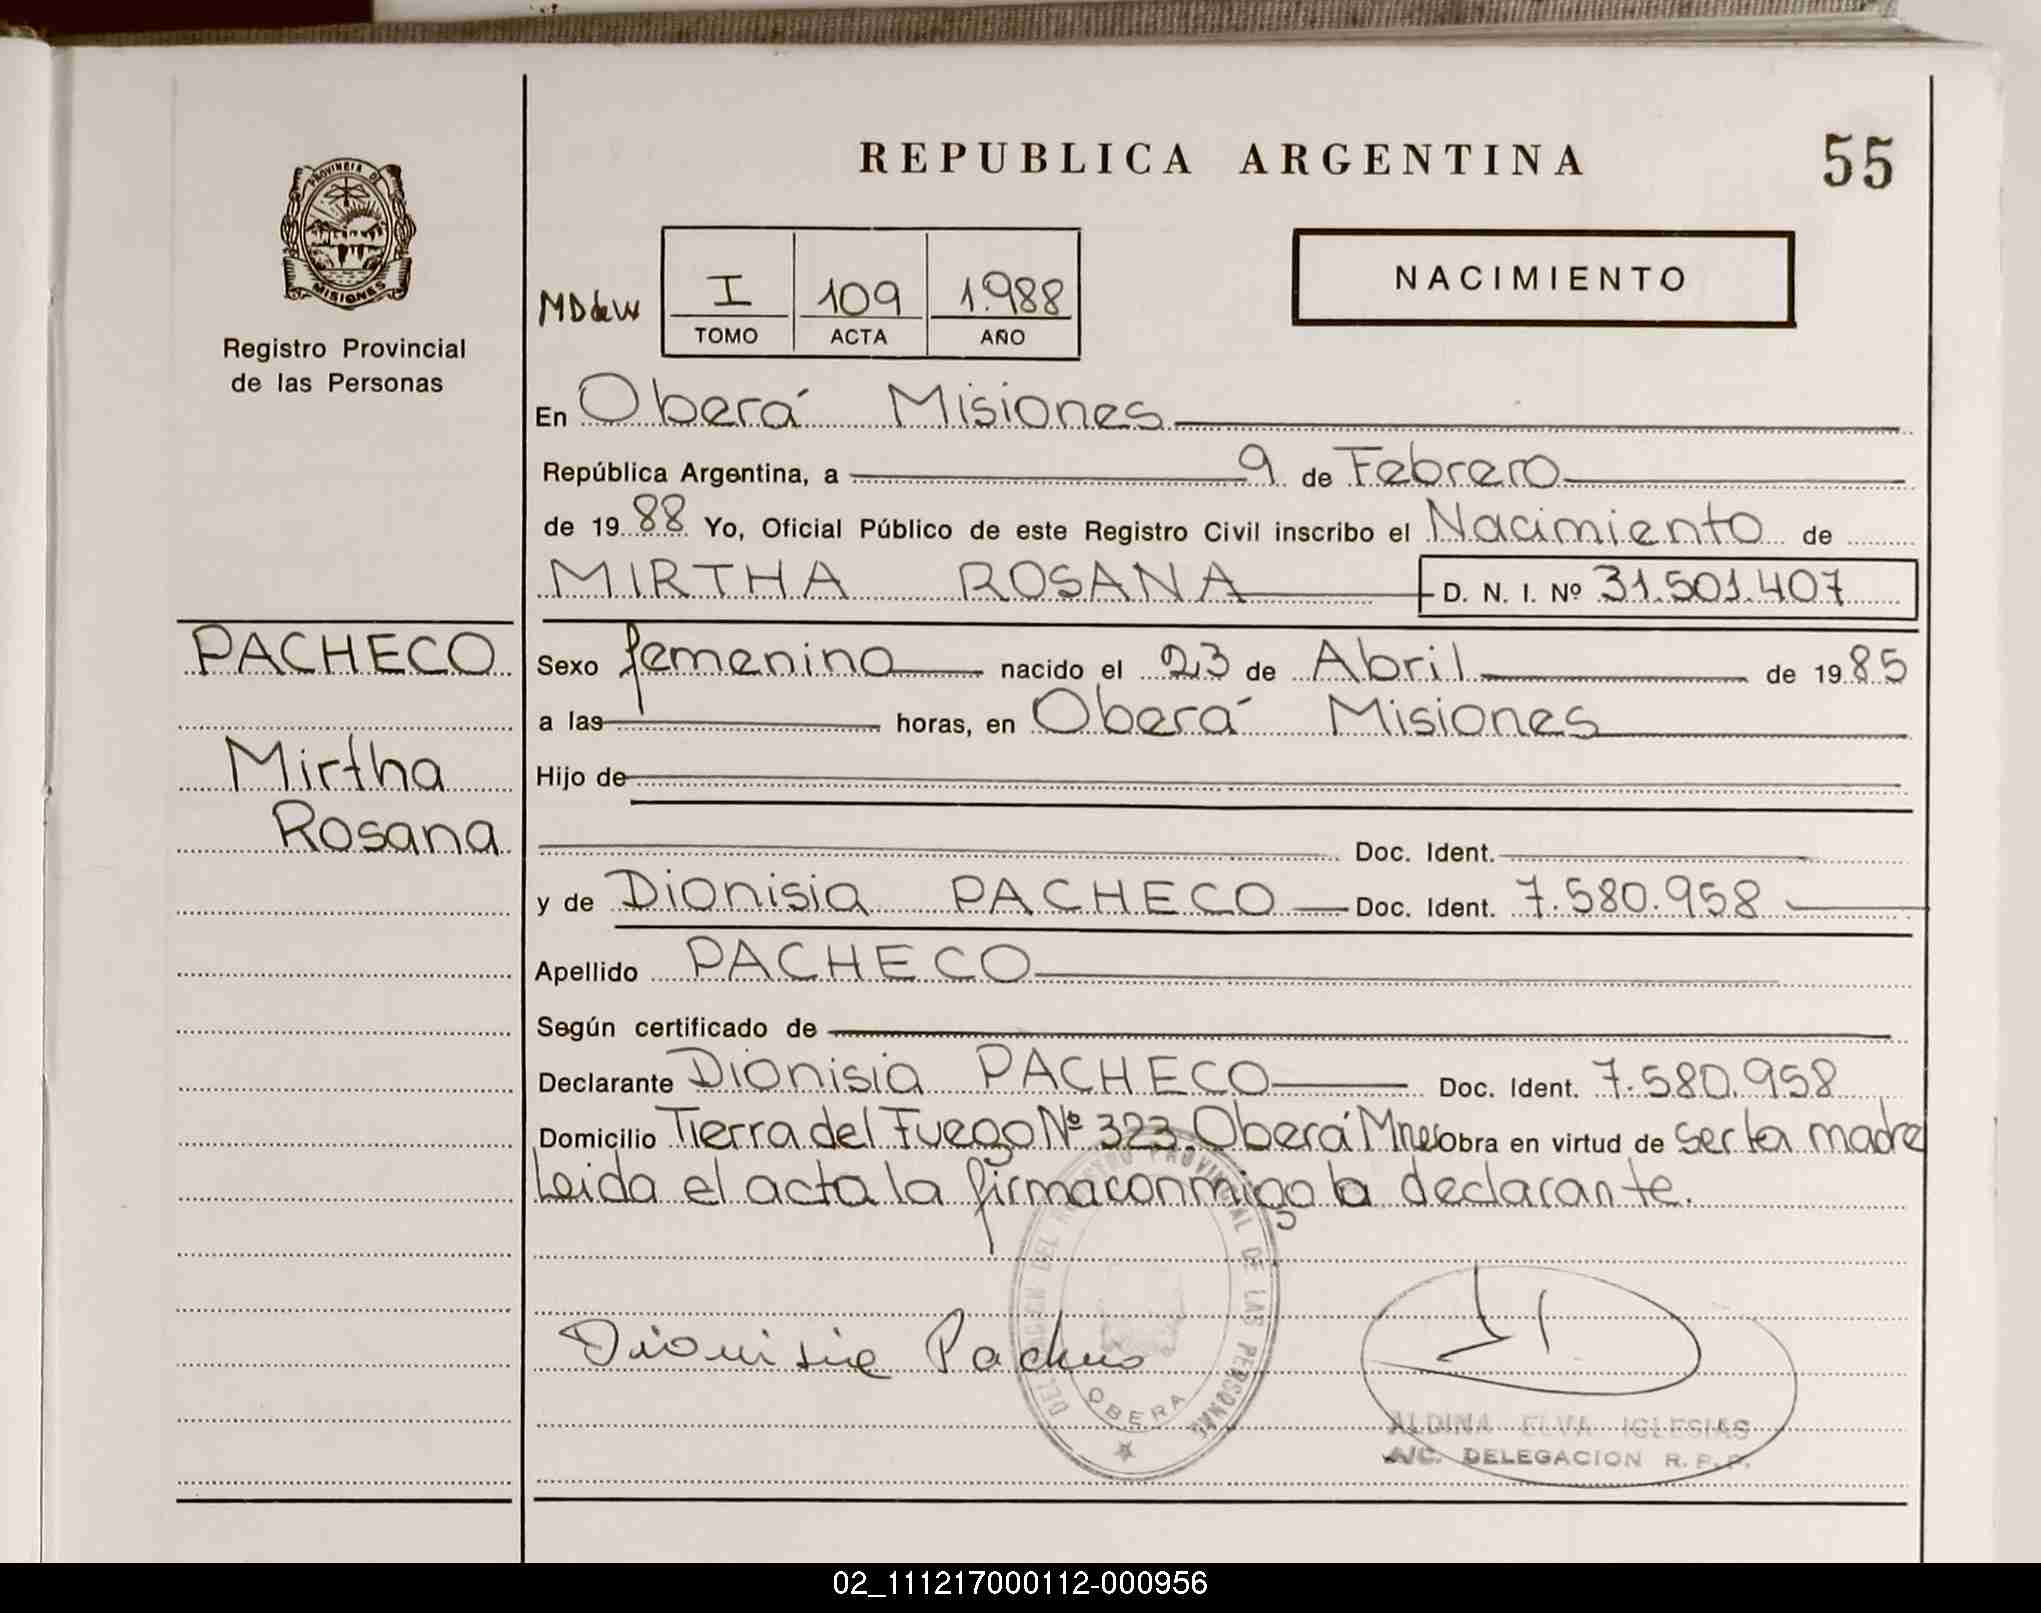 REPUBLICA ARGENTINA
55
PROVINCIA DE
MISIONES
Registro Provincial
de las Personas
I 109 1.988
TOMO ACTA AÑO
NACIMIENTO
En Oberá Misiones
República Argentina, a 9 de Febrero
de 1988 Yo, Oficial Público de este Registro Civil inscribo el Nacimiento de
MIRTHA ROSANA D. N. I. Nº 31.501.407
PACHECO
Mirtha
Rosana
Sexo femenino nacido el 23 de Abril de 1985
a las horas, en Oberá Misiones
Hijo de
Doc. Ident.
y de Dionisia PACHECO Doc. Ident. 7.580.958
Apellido PACHECO
Según certificado de
Declarante Dionisia PACHECO Doc. Ident. 7.580.958
Domicilio Tierra del Fuego Nº 323. Oberá Mnes Obra en virtud de ser la madre
Leida el acta la firma conmigo la declarante.
DELEGACION DEL REGISTRO PROVINCIAL DE LAS PERSONAS
OBERA
Dionisia Pacheco
ALDINA ELVA IGLESIAS
A/C. DELEGACION R. P. P.
02_111217000112-000956